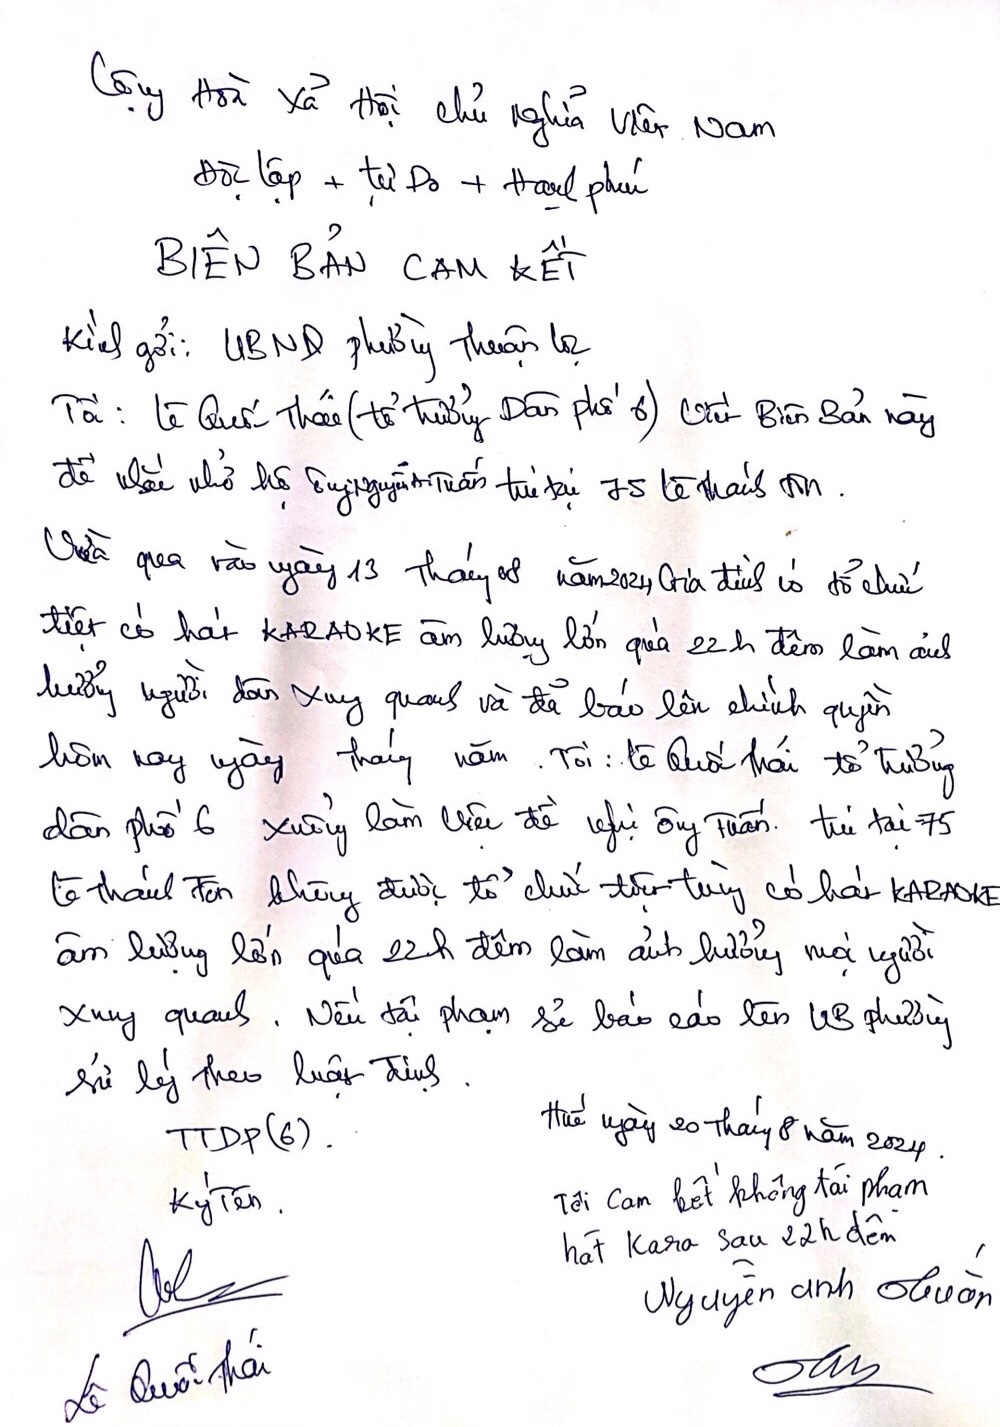 Cộng Hoà Xả Hội chủ nghỉa Việt Nam
Độc lập + tự Do + Hạnh phúc
BIÊN BẢN CAM KẾT
Kính gởi: UBND phường Thuận Lộc
Tôi: Lê Quốc Thái (tổ trưởng Dân phố 6) Viết Biên Bản này
để nhắc nhở hộ Ông Nguyễn A Tuấn trú tại 75 Lê Thánh Tôn.
Vừa qua vào ngày 13 Tháng 08 năm 2024 Gia đình có tổ chức
tiệt có hát KARAOKE âm lượng lớn quá 22h đêm làm ảnh
hưởng người dân xung quanh và đả báo lên chính quyền
hôm nay ngày tháng năm . Tôi: Lê Quốc Thái tổ trưởng
dân phố 6 xuống làm việc đề nghị ông Tuấn. trú tại 75
Lê Thánh Tôn không được tổ chức tiệt tùng có hát KARAOKE
âm lượng lớn quá 22h đêm làm ảnh hưởng mọi người
xung quanh. Nếu tái phạm sẻ báo cáo lên UB phường
xử lý theo luật định.
TTDP(6).
Huế ngày 20 Tháng 8 năm 2024.
Ký Tên.
Tôi Cam kết không tái phạm
hát Kara sau 22h đêm
Nguyễn Anh Tuấn
Lê Quốc Thái